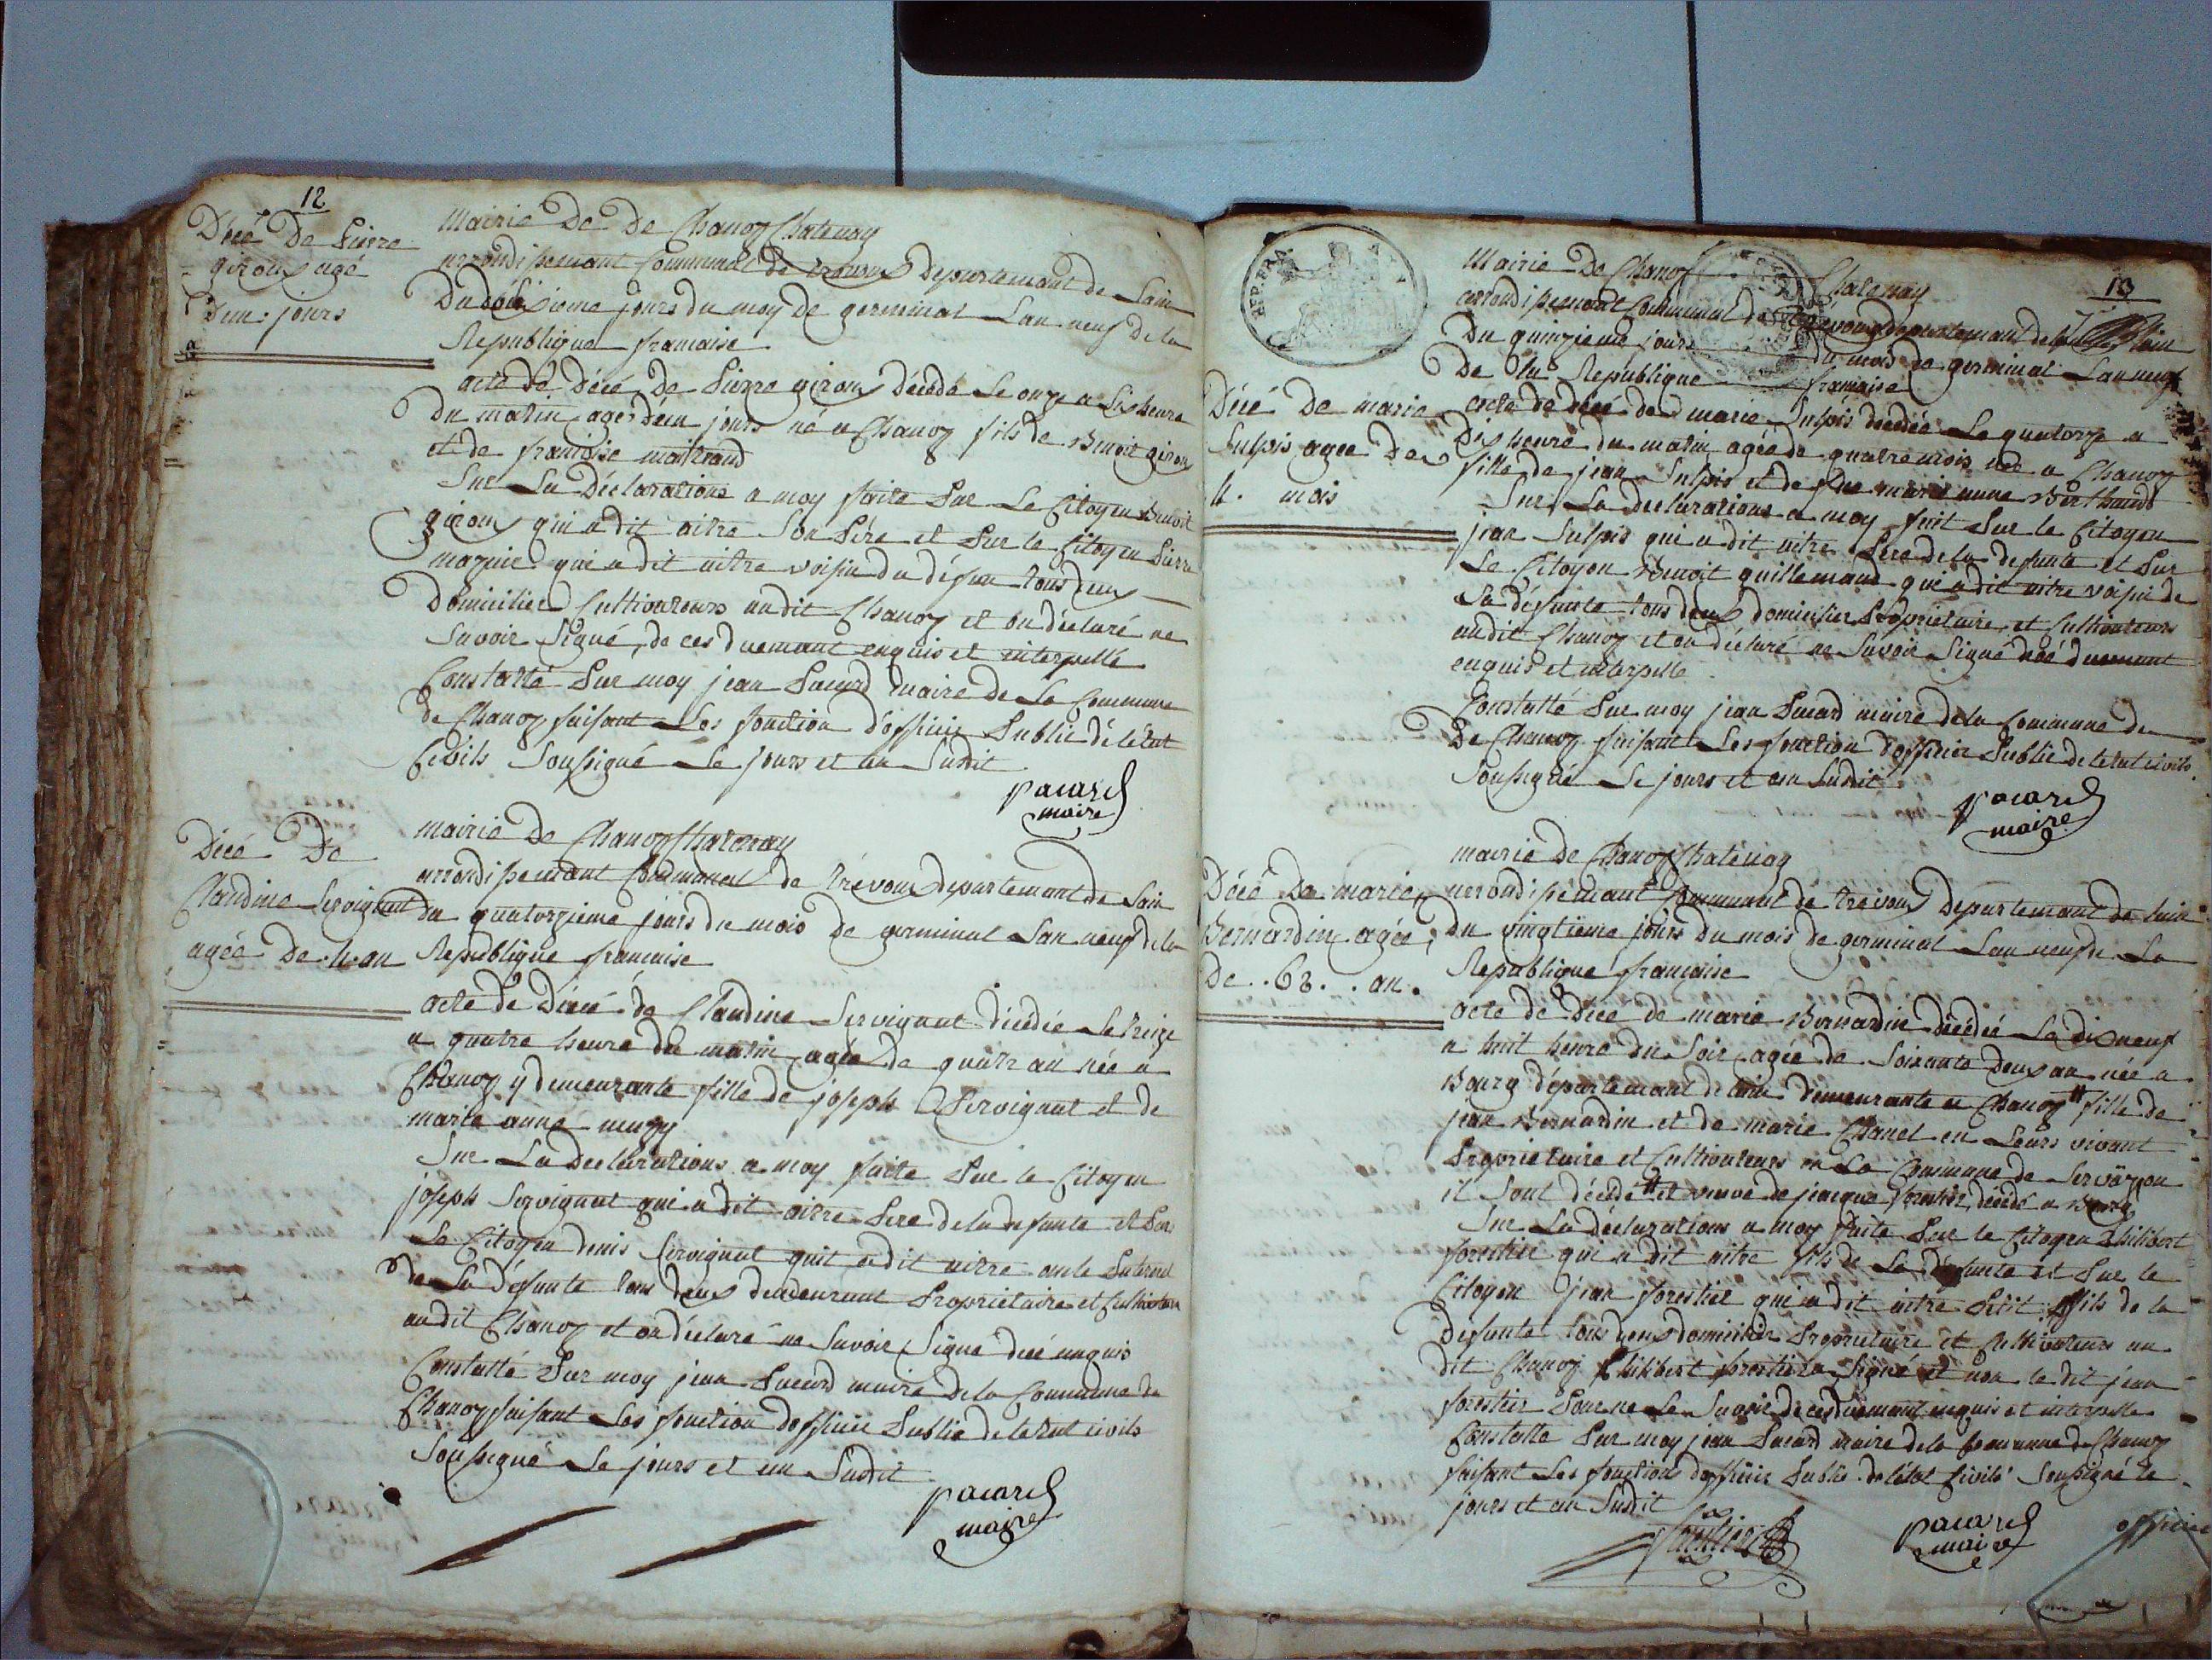 12
Décé De Pierre
giroux agé
Dun jours
Mairie De De Chanoz Chatenay
arrondissemant Communal de trevoux Departement de Lain
Du douzieme jours du moy de germinal Lan neuf de la
Republique francaise
acte de Décé de Pierre giroux décédé Le onze a Six heure
Du matin ager d'un jours né a Chanoz fils de Benoit giroux
et de francoise
Sur La Déclarations a moy faite Par Le Citoyen Benoit
giroux qui a dit aitre Son Pére et Par le Citoyen Pierre
qui a dit aitre voisin du défun tous deux
Domicilier Cultivateurs audit Chanoz et on déclaré ne
Savoir Signé, de ces duemant enquis et interpellé
Constatté Par moy jean Pacard maire de La Commune
de Chanoz faisant Les fonction d'officier Public de létat
Civils Soussigné Le jours et an Sudit
pacard
maire
Décé De
Claudine Servignat
agée De 4 an
mairie de Chanoz Chatenay
arrondissemant Communal de trévoux departemant de Lain
du quatorzieme jours du mois de germinal Lan neuf de la
Republique francaise
acte de Décé de Claudine Servignat décédée le treize
a quatre heure du matin agée de quatr an née a
Chanoz y demeurante fille de joseph Servignat et de
marie anne
Sur La Declarations a moy faite Par le Citoyen
joseph Servignat qui a dit aitre Pere de la defunte et Par
Le Citoyen denis Servignat quit a dit aitre oncle Paternel
de La défunte tous deux demeurant Propriétaire et Cultivateur
audit Chanoz et on déclaré ne Savoir Signé décé enquis
Constatté Par moy jean Pacard maire de la Commune de
Chanoz faisant Les fonction dofficier Public de létat civils
Soussigné Le jours et an Sudit
pacard
maire
13
REP. FRA
Mairie De Chanoz Chatenay
arrondissemant Communal de trevoux departemant de Lain
Du quinzieme jours du mois de germinal Lan neuf
De la Republique francaise
Décé De marie
Sulpis agée De
4. mois
acte de décé de marie Sulpis décédée Le quatorze a
Dix heure du matin agée de quatre mois née a Chanoz
fille de jean Sulpis et de marie anne Berthaud
Sur La declarations a moy fait Par le Citoyen
jean Sulpis qui a dit aitre Pere de la defunte et Par
Le Citoyen Benoit guillemaud qui a dit aitre voisin de
La défunte tous deux domicilier Propriétaire et Cultivateurs
audit Chanoz et on déclaré ne Savoir Signé décé duemant
enquis et interpellé
Constatté Par moy jean Pacard maire de la Commune de
De Chanoz faisant Les fonction dofficier Public de létat civils
Soussigné Le jours et an Sudit
pacard
maire
Décé De marie
Bernardin agée
De . 62 . . an .
mairie de Chanoz Chatenay
arrondissemant Communal de trevoux departemant de Lain
Du vingtieme jours du mois de germinal Lan neuf de La
Republique francaise
acte de Décé de marie Bernardin décédée Le dixneuf
a huit heure du Soir agée de Soixante deux an née a
Bourg département de lain demeurante a Chanoz # fille de
jean Bernardin et de marie Chanel en Leurs vivant
Propriétaire et Cultivateurs en La Commune de
il Sont décédé # et veuve de jacque forestier, décédé a Bourg
Sur La déclarations a moy faite Par le Citoyen Philibert
forestier qui a dit aitre fils de La défunte et Par le
Citoyen jean forestier qui a dit aitre Petit fils de la
défunte tous deux domicilier Propriétaire et Cultivateurs au
dit Chanoz Philibert forestier a Signé et non le dit jean
forestier Pour ne Le Savoir de ces duemant enquis et interpellé
Constatté Par moy jean Pacard maire de la Commune de Chanoz
faisant Les fonctions dofficier Public de létat Civils Soussigné Le
jours et an Sudit
pacard
maire
officier